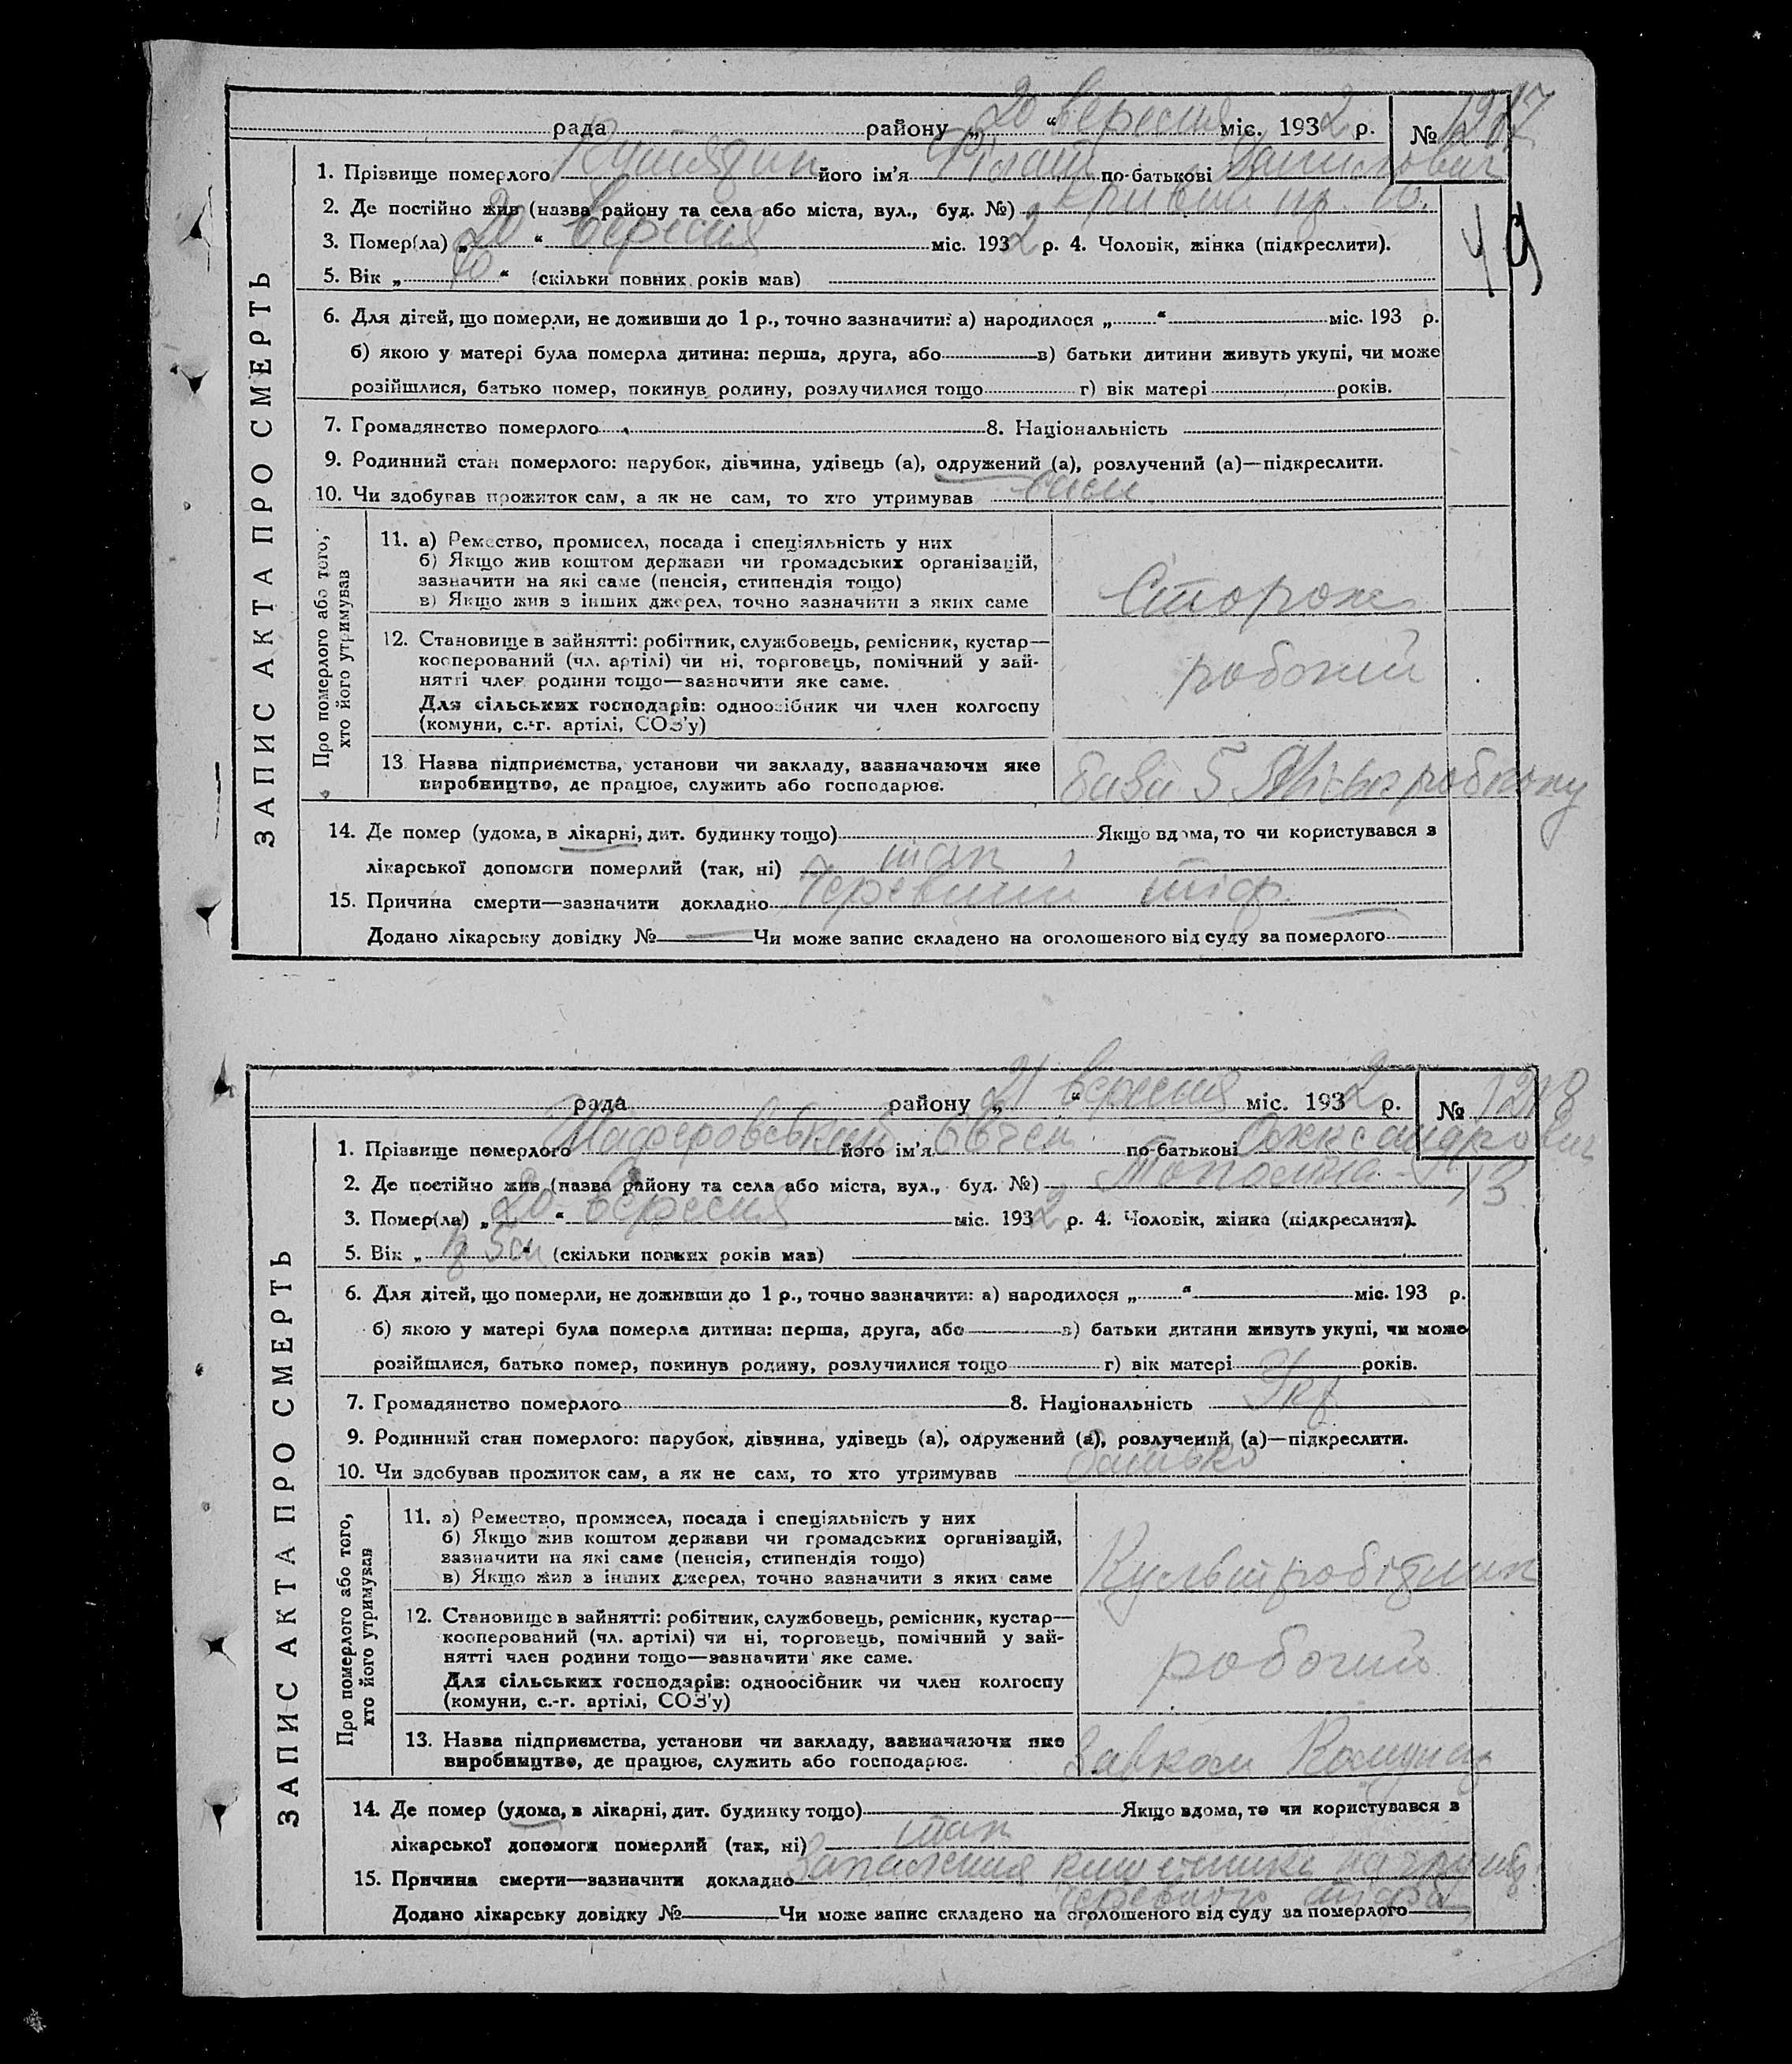 рада району „20“ вересня міс. 1932 р. № 1217
1. Прізвище померлого його ім'я Філат по-батькові Данилович
2. Де постійно жив (назва району та села або міста, вул., буд. №) Кривий 10.
3. Помер(ла) „20“ вересня міс. 1932 р. 4. Чоловік, жінка (підкреслити).
49
5. Вік „ “ (скільки повних років мав)
6. Для дітей, що померли, не доживши до 1 р., точно зазначити: а) народилося „ “ міс. 193 р.
б) якою у матері була померла дитина: перша, друга, або в) батьки дитини живуть укупі, чи може
розійшлися, батько помер, покинув родину, розлучилися тощо г) вік матері років.
7. Громадянство померлого 8. Національність
9. Родинний стан померлого: парубок, дівчина, удівець (а), одружений (а), розлучений (а)—підкреслити.
10. Чи здобував прожиток сам, а як не сам, то хто утримував
ЗАПИС АКТА ПРО СМЕРТЬ
Про померлого або того,
хто його утримував
11. а) Ремество, промисел, посада і спеціяльність у них
б) Якщо жив коштом держави чи громадських організацій,
зазначити на які саме (пенсія, стипендія тощо)
в) Якщо жив з інших джерел, точно зазначити з яких саме
Сторож
12. Становище в зайнятті: робітник, службовець, ремісник, кустар—
кооперований (чл. артілі) чи ні, торговець, помічний у зай-
нятті член родини тощо—зазначити яке саме.
Для сільських господарів: одноосібник чи член колгоспу
(комуни, с.-г. артілі, СОЗ'у)
робочий
13. Назва підприємства, установи чи закладу, зазначаючи яке
виробництво, де працює, служить або господарює.
база 5 Міськробкопу
14. Де помер (удома, в лікарні, дит. будинку тощо) Якщо вдома, то чи користувався з
лікарської допомоги померлий (так, ні) так
15. Причина смерти—зазначити докладно Черевний тіф.
Додано лікарську довідку № Чи може запис складено на оголошеного від суду за померлого
рада району „21“ вересня міс. 1932 р. № 1218
1. Прізвище померлого його ім'я Євген по-батькові Олександрович
2. Де постійно жив (назва району та села або міста, вул., буд. №) 13
3. Помер(ла) „20“ вересня міс. 1932 р. 4. Чоловік, жінка (підкреслити).
5. Вік „ “ (скільки повних років мав)
6. Для дітей, що померли, не доживши до 1 р., точно зазначити: а) народилося „ “ міс. 193 р.
б) якою у матері була померла дитина: перша, друга, або в) батьки дитини живуть укупі, чи може
розійшлися, батько помер, покинув родину, розлучилися тощо г) вік матері років.
7. Громадянство померлого 8. Національність Укр
9. Родинний стан померлого: парубок, дівчина, удівець (а), одружений (а), розлучений (а)—підкреслити.
10. Чи здобував прожиток сам, а як не сам, то хто утримував батько
ЗАПИС АКТА ПРО СМЕРТЬ
Про померлого або того,
хто його утримував
11. а) Ремество, промисел, посада і спеціяльність у них
б) Якщо жив коштом держави чи громадських організацій,
зазначити на які саме (пенсія, стипендія тощо)
в) Якщо жив з інших джерел, точно зазначити з яких саме
Культробітник
12. Становище в зайнятті: робітник, службовець, ремісник, кустар—
кооперований (чл. артілі) чи ні, торговець, помічний у зай-
нятті член родини тощо—зазначити яке саме.
Для сільських господарів: одноосібник чи член колгоспу
(комуни, с.-г. артілі, СОЗ'у)
робочий
13. Назва підприємства, установи чи закладу, зазначаючи яке
виробництво, де працює, служить або господарює.
Завком
14. Де помер (удома, в лікарні, дит. будинку тощо) Якщо вдома, то чи користувався з
лікарської допомоги померлий (так, ні) так
15. Причина смерти—зазначити докладно Запалення на грунті
черевного тіфа
Додано лікарську довідку № Чи може запис складено на оголошеного від суду за померлого